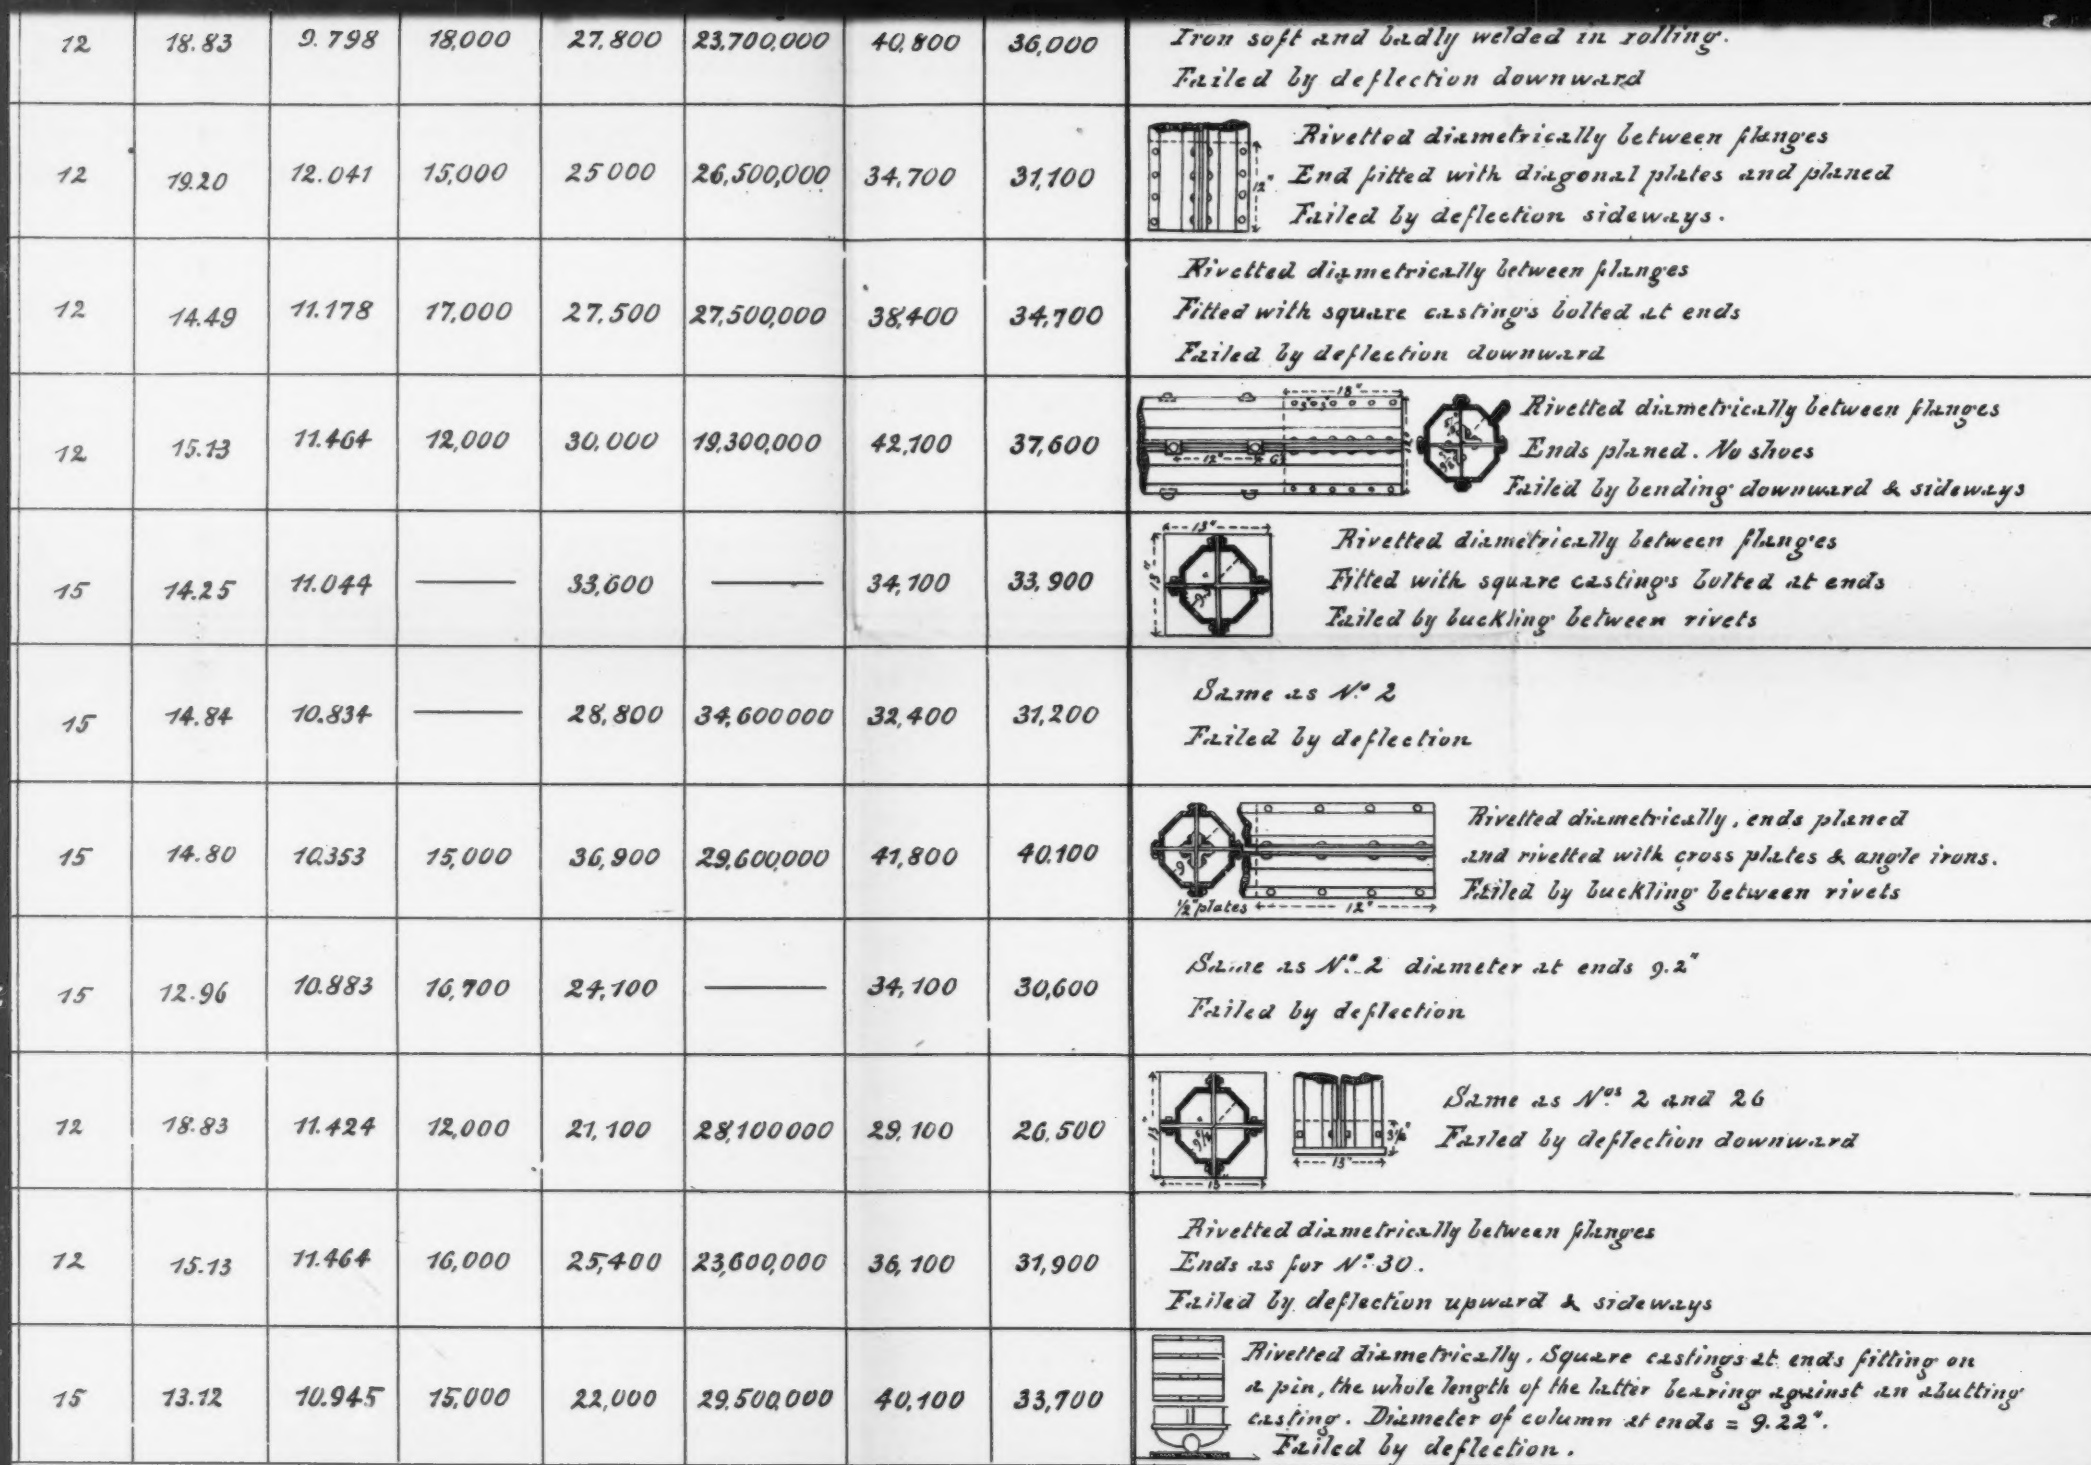 12 18.83 9.798 18,000 27,800 23,700,000 40,800 36,000
Iron soft and badly welded in rolling.
Failed by deflection downward
12 19.20 12.041 15,000 25000 26,500,000 34,700 31,100
12"
Rivetted diametrically between flanges
End fitted with diagonal plates and planed
Failed by deflection sideways.
12 14.49 11.178 17,000 27,500 27,500,000 38,400 34,700
Rivetted diametrically between flanges
Fitted with square castings bolted at ends
Failed by deflection downward
12 15.13 11.464 12,000 30,000 19,300,000 42,100 37,600
18"
3" 3"
12" 6"
Rivetted diametrically between flanges
Ends planed. No shoes
Failed by bending downward & sideways
15 14.25 11.044 33,600 34,100 33,900
13"
13"
Rivetted diametrically between flanges
Fitted with square castings bolted at ends
Failed by buckling between rivets
15 14.84 10.834 28,800 34,600000 32,400 31,200
Same as No. 2
Failed by deflection
15 14.80 10.353 15,000 36,900 29,600,000 41,800 40.100
9"
½" plates 12"
Rivetted diametrically, ends planed
and rivetted with cross plates & angle irons.
Failed by buckling between rivets
15 12.96 10.883 16,700 24,100 34,100 30,600
Same as No. 2 diameter at ends 9.2"
Failed by deflection
12 18.83 11.424 12,000 21,100 28,100000 29,100 26,500
13"
13"
Same as Nos. 2 and 26
Failed by deflection downward
12 15.13 11.464 16,000 25,400 23,600,000 36,100 31,900
Rivetted diametrically between flanges
Ends as for No. 30.
Failed by deflection upward & sideways
15 13.12 10.945 15,000 22,000 29,500,000 40,100 33,700
Rivetted diametrically. Square castings at ends fitting on
a pin, the whole length of the latter bearing against an abutting
casting. Diameter of column at ends = 9.22".
Failed by deflection.